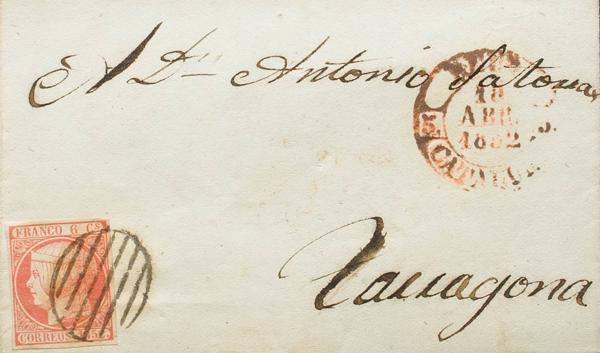 A Dn Antonio Satorras
18
ABR.
1852
5.
FRANCO 6 Cs
CORREOS 1852
Tarragona